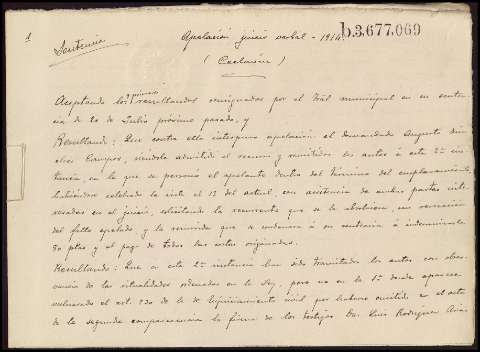 1
Sentencia
Apelación juicio verbal - 1914
b.3.677.069
Aceptando los primeros resultandos consignados por el Tral municipal en su senten-
cia de 20 de Julio próximo pasado, y
Resultando: Que contra ella interpuso apelación el demandado Augusto
Campos, siéndole admitido el recurso y remitidos los autos á esta 2ª ins-
tancia, en la que se personó el apelante dentro del término del emplazamiento,
habiéndose celebrado la vista el 12 del actual, con asistencia de ambas partas inte-
resadas en el juicio, solicitando la recurrente que se le absolviera, con revocación
del fallo apelado, y la recurrida que se condenara á su contraria á indemnizarle
80 ptas y al pago de todas las costas originadas.
Resultando: Que en esta 2ª instancia han sido tramitados los autos con obser-
vancia de las solemnidades ordenadas en la ley, pero no en la 1ª donde aparece
vulnerado el art. de la de Enjuiciamiento civil por haberse omitido en el acta
de la segunda comparecencia la firma de los testigos Dn. Luis Rodriguez Arias